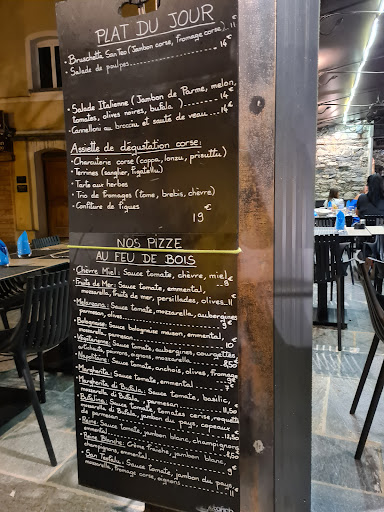 PLAT DU JOUR
• Bruschetta San Teo (Jambon corse, fromage corse) 11 €
• Salade de poulpes 14 €
• Salade Italienne (Jambon de Parme, melon,
tomates, olives noires, bufala) 14 €
• Cannelloni au brocciu et sauté de veau 14 €
Assiette de dégustation corse:
• Charcuterie corse (coppa, lonzu, prisuttu)
• Terrines (sanglier, figatellu)
• Tarte aux herbes
• Trio de fromages (tome, brebis, chèvre)
• Confiture de figues
19 €
NOS PIZZE
AU FEU DE BOIS
Chèvre Miel: Sauce tomate, chèvre, miel 9 €
Fruits de Mer: Sauce tomate, emmental,
mozzarella, fruits de mer, persillades, olives 11 €
Melanzana: Sauce tomate, mozzarella, aubergines
parmesan, olives 9 €
Bolognaise: Sauce bolognaise maison, emmental,
mozzarella, parmesan 10 €
Végétarienne: Sauce tomate, aubergines, courgettes,
artichauts, poivrons, oignons, mozzarella
Napolitaine: Sauce tomate, anchois, olives, fromage
Margherita: Sauce tomate, emmental 9 €
Margherita di Bufala: Sauce tomate, basilic,
mozzarella di Bufala, parmesan 11,50
Bufalina: Sauce tomate, tomates cerise, roquette
mozzarella di Bufala, jambon du pays, copeaux
de parmesan 13,50
Reine: Sauce tomate, jambon blanc, champignons
emmental
Reine Blanche: Crème fraîche, jambon blanc,
champignons, emmental 9 €
San Teofalu: Sauce tomate, jambon du pays,
mozzarella, fromage corse, oignons 11 €